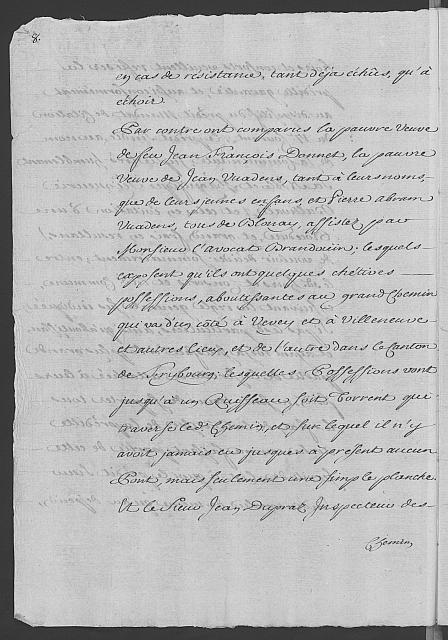 8.
en cas de résistance, tant déja échûs, qu'à
échoir.
Par contre ont comparües la pauvre Veuve
de feu Jean François Donnet, la pauvre
Veuve de Jean Vuadens, tant à leurs noms,
que de leurs jeunes enfans, et Pierre abram
Vuadens, tous de Blonay, assistez par
Monsieur l'avocat Brandouin; lesquels
exposent qu'ils ont quelques chétives
possessions, aboutissantes au grand Chemin
qui va d'un côté à Vevey et à Villeneuve
et autres lieux, et de l'autre dans le Canton
de Frybourg; lesquelles Possessions vont
jusqu'à un Ruisseau soit Torrent qui
traverse led. Chemin, et sur lequel il n'y
avoit jamais eu jusques à présent aucun
Pont, mais seulement une simple planche.
Et le Sieur Jean Dupraz Inspecteur des
Chemin